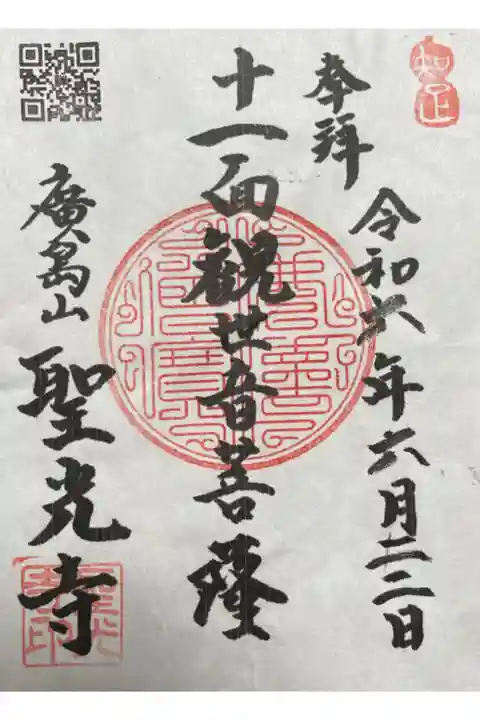 知足
奉拝
令和六年六月二二日
十一面観世音菩薩
廣島山
聖光寺